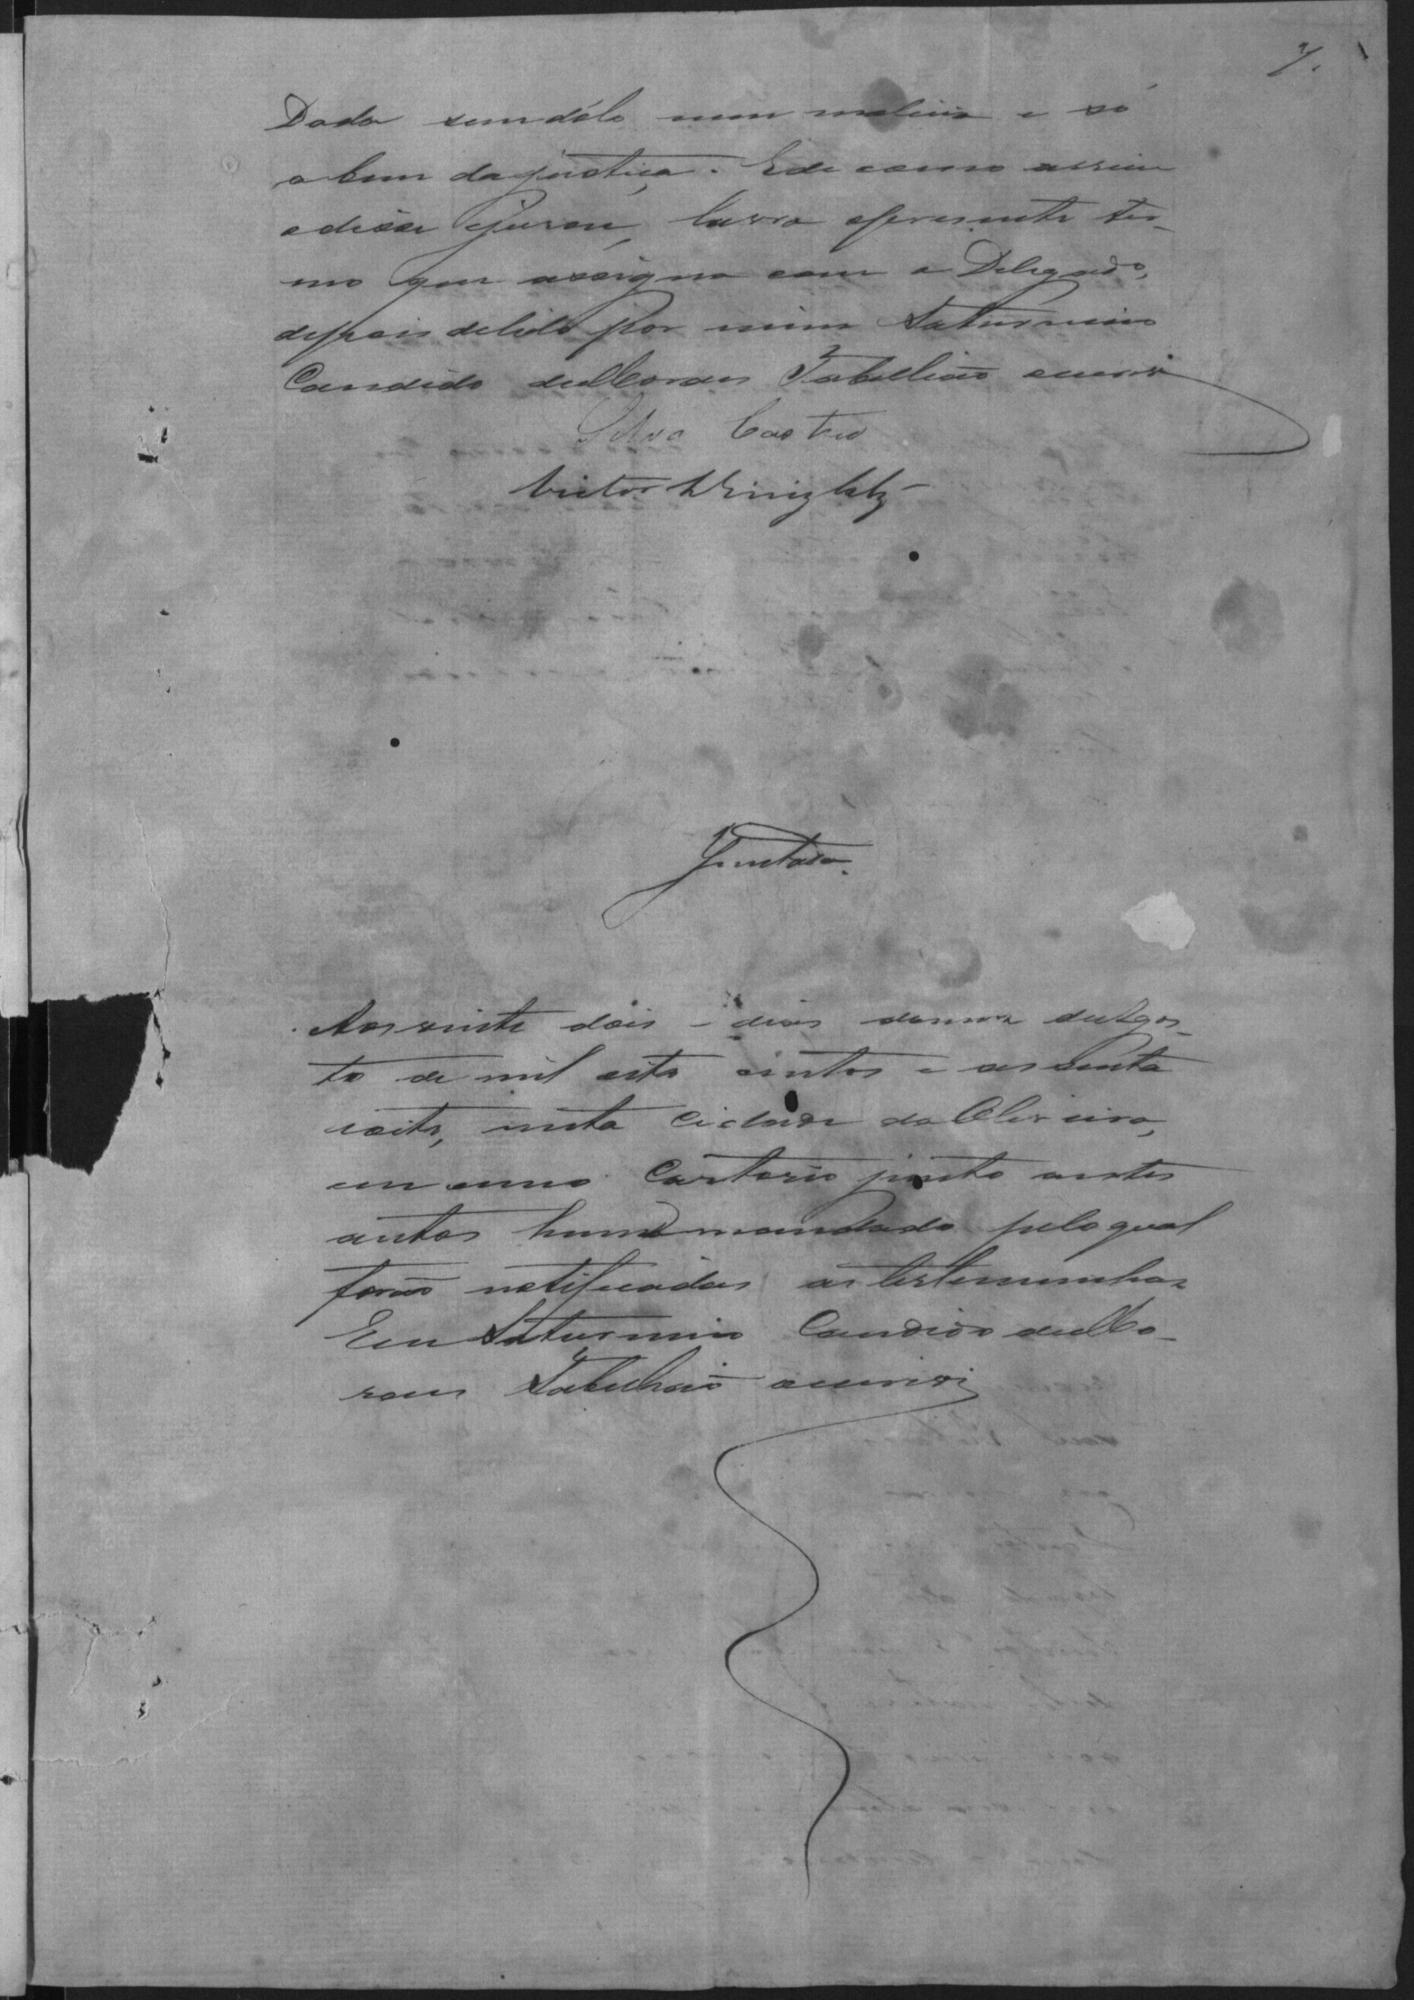 7.
Dada sem dólo nem malicia e só
a bem da justiça. E de como assim
o disse e jurou, lavro o presente ter-
mo que assigna com o Delegado,
depois de lido por mim Saturnino
Candido de Moraes Tabellião escrevi
Silva Castro
Victor
Juntada.
Aos vinte dois dias do mez de Agos-
to de mil oito centos e sessenta
e oito, nesta Cidade da Oliveira,
em meu Cartorio junto a estes
autos hum mandado pelo qual
forão notificadas as testemunhas
Eu Saturnino Candido de Mo-
raes Tabellião escrevi